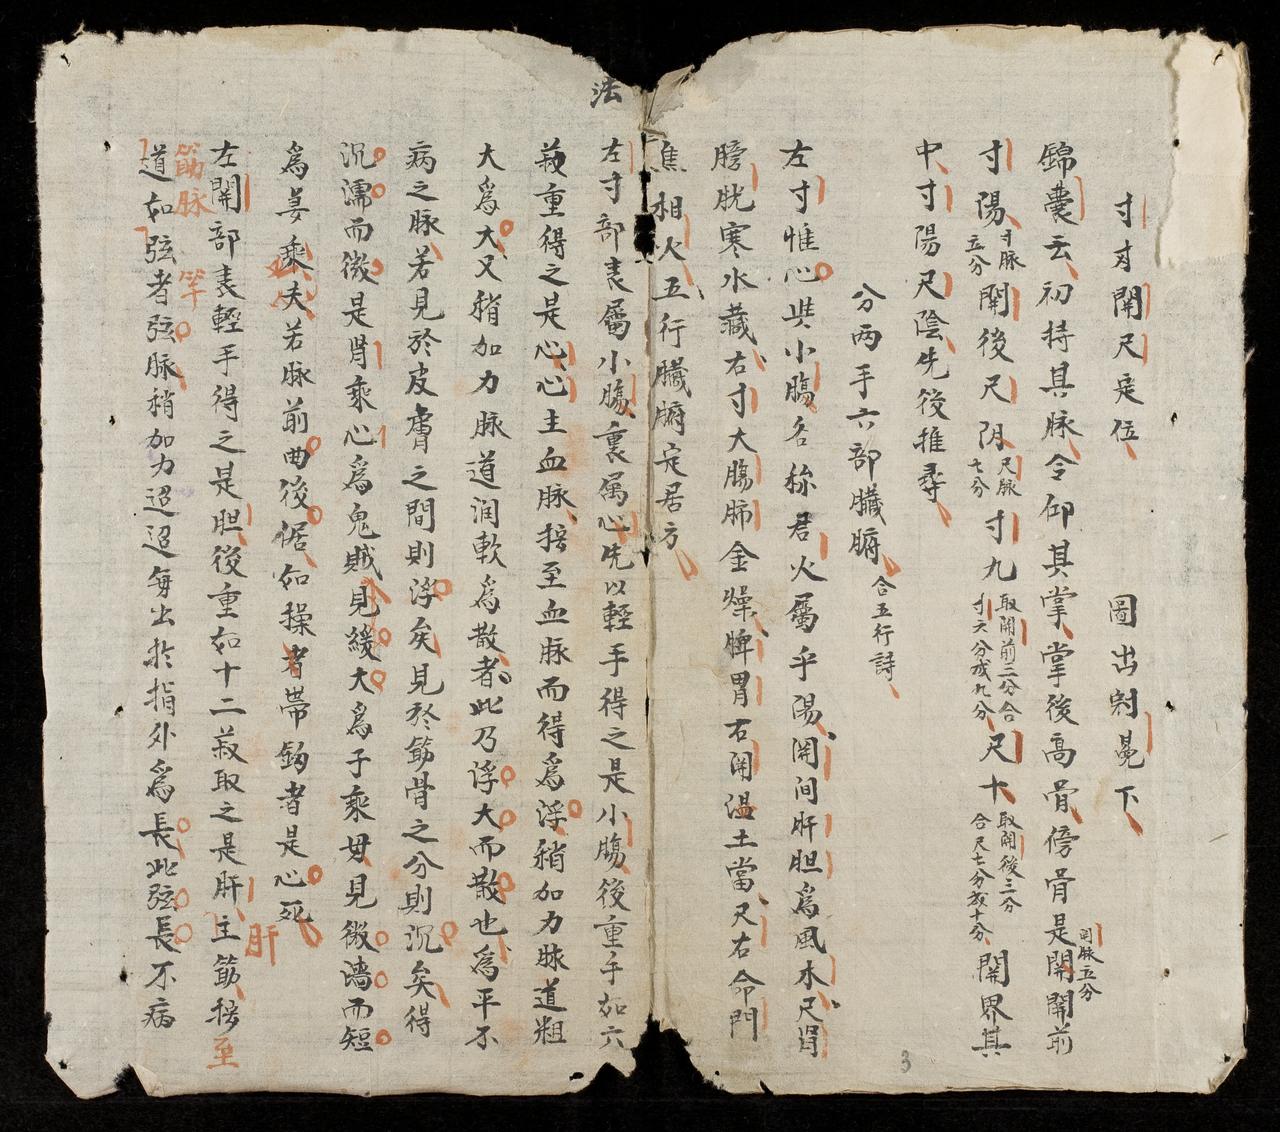 寸寸關尺定位 圖出剝晃下
錦囊云初持其脉令仰其掌掌後高骨傍骨是關關前
關脉五分
寸陽寸脉五分關後尺阴尺脉七分寸九取關前三分合寸六分成九分尺十取關後三分合尺七分成十分關界其
中寸陽尺陰先後推尋
分两手六部臟腑合五行詩
左寸惟心與小腸名称君火屬乎陽関间肝胆為風木尺腎
膀胱寒水藏右寸大腸肺金燥脾胃右関温土當尺右命門
焦相火五行臟腑定居方
法
左寸部表屬小腸裏属心先以輕手得之是小腸後重手如六
菽重得之是心心主血脉按至血脉而得為浮稍加力脉道粗
大為大又稍加力脉道润軟為散者此乃浮大而散也為平不
病之脉若見於皮膚之間則浮矣見於筋骨之分則沉矣得
沉濡而微是腎乘心為鬼賊見緩大為子乘母見微濇而短
為妻乘夫若脉前曲後倨如操者帶鈎者是心死
左關部表輕手得之是胆後重如十二菽取之是肝主筋按
肝
至
筋脉
道如弦者弦脉稍加力迢迢每出於指外為長此弦長不病
竿